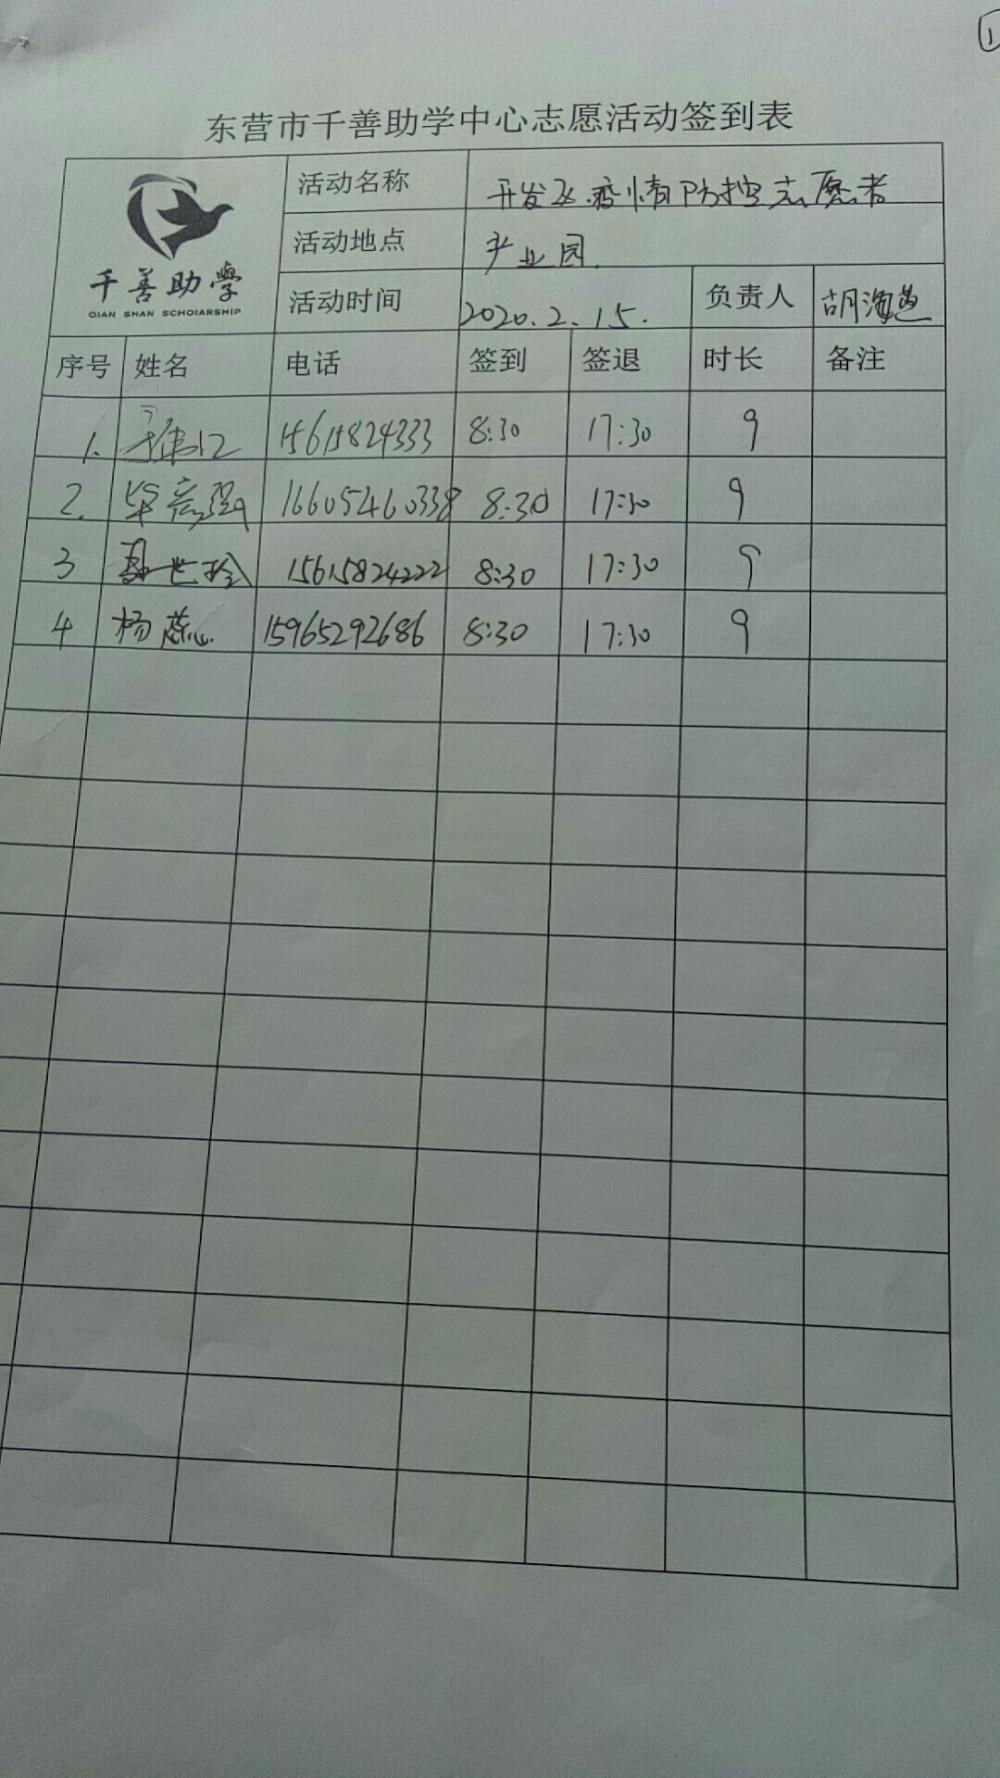 1
东营市千善助学中心志愿活动签到表
千善助學
QIAN SHAN SCHOLARSHIP
活动名称 开发区疫情防控志愿者
活动地点 产业园
活动时间 2020.2.15. 负责人 胡海
序号 姓名 电话 签到 签退 时长 备注
1. 15615824333 8:30 17:30 9
2. 毕高强 16605460338 8:30 17:30 9
3 世玲 15615824222 8:30 17:30 9
4 杨蕊 15965292686 8:30 17:30 9